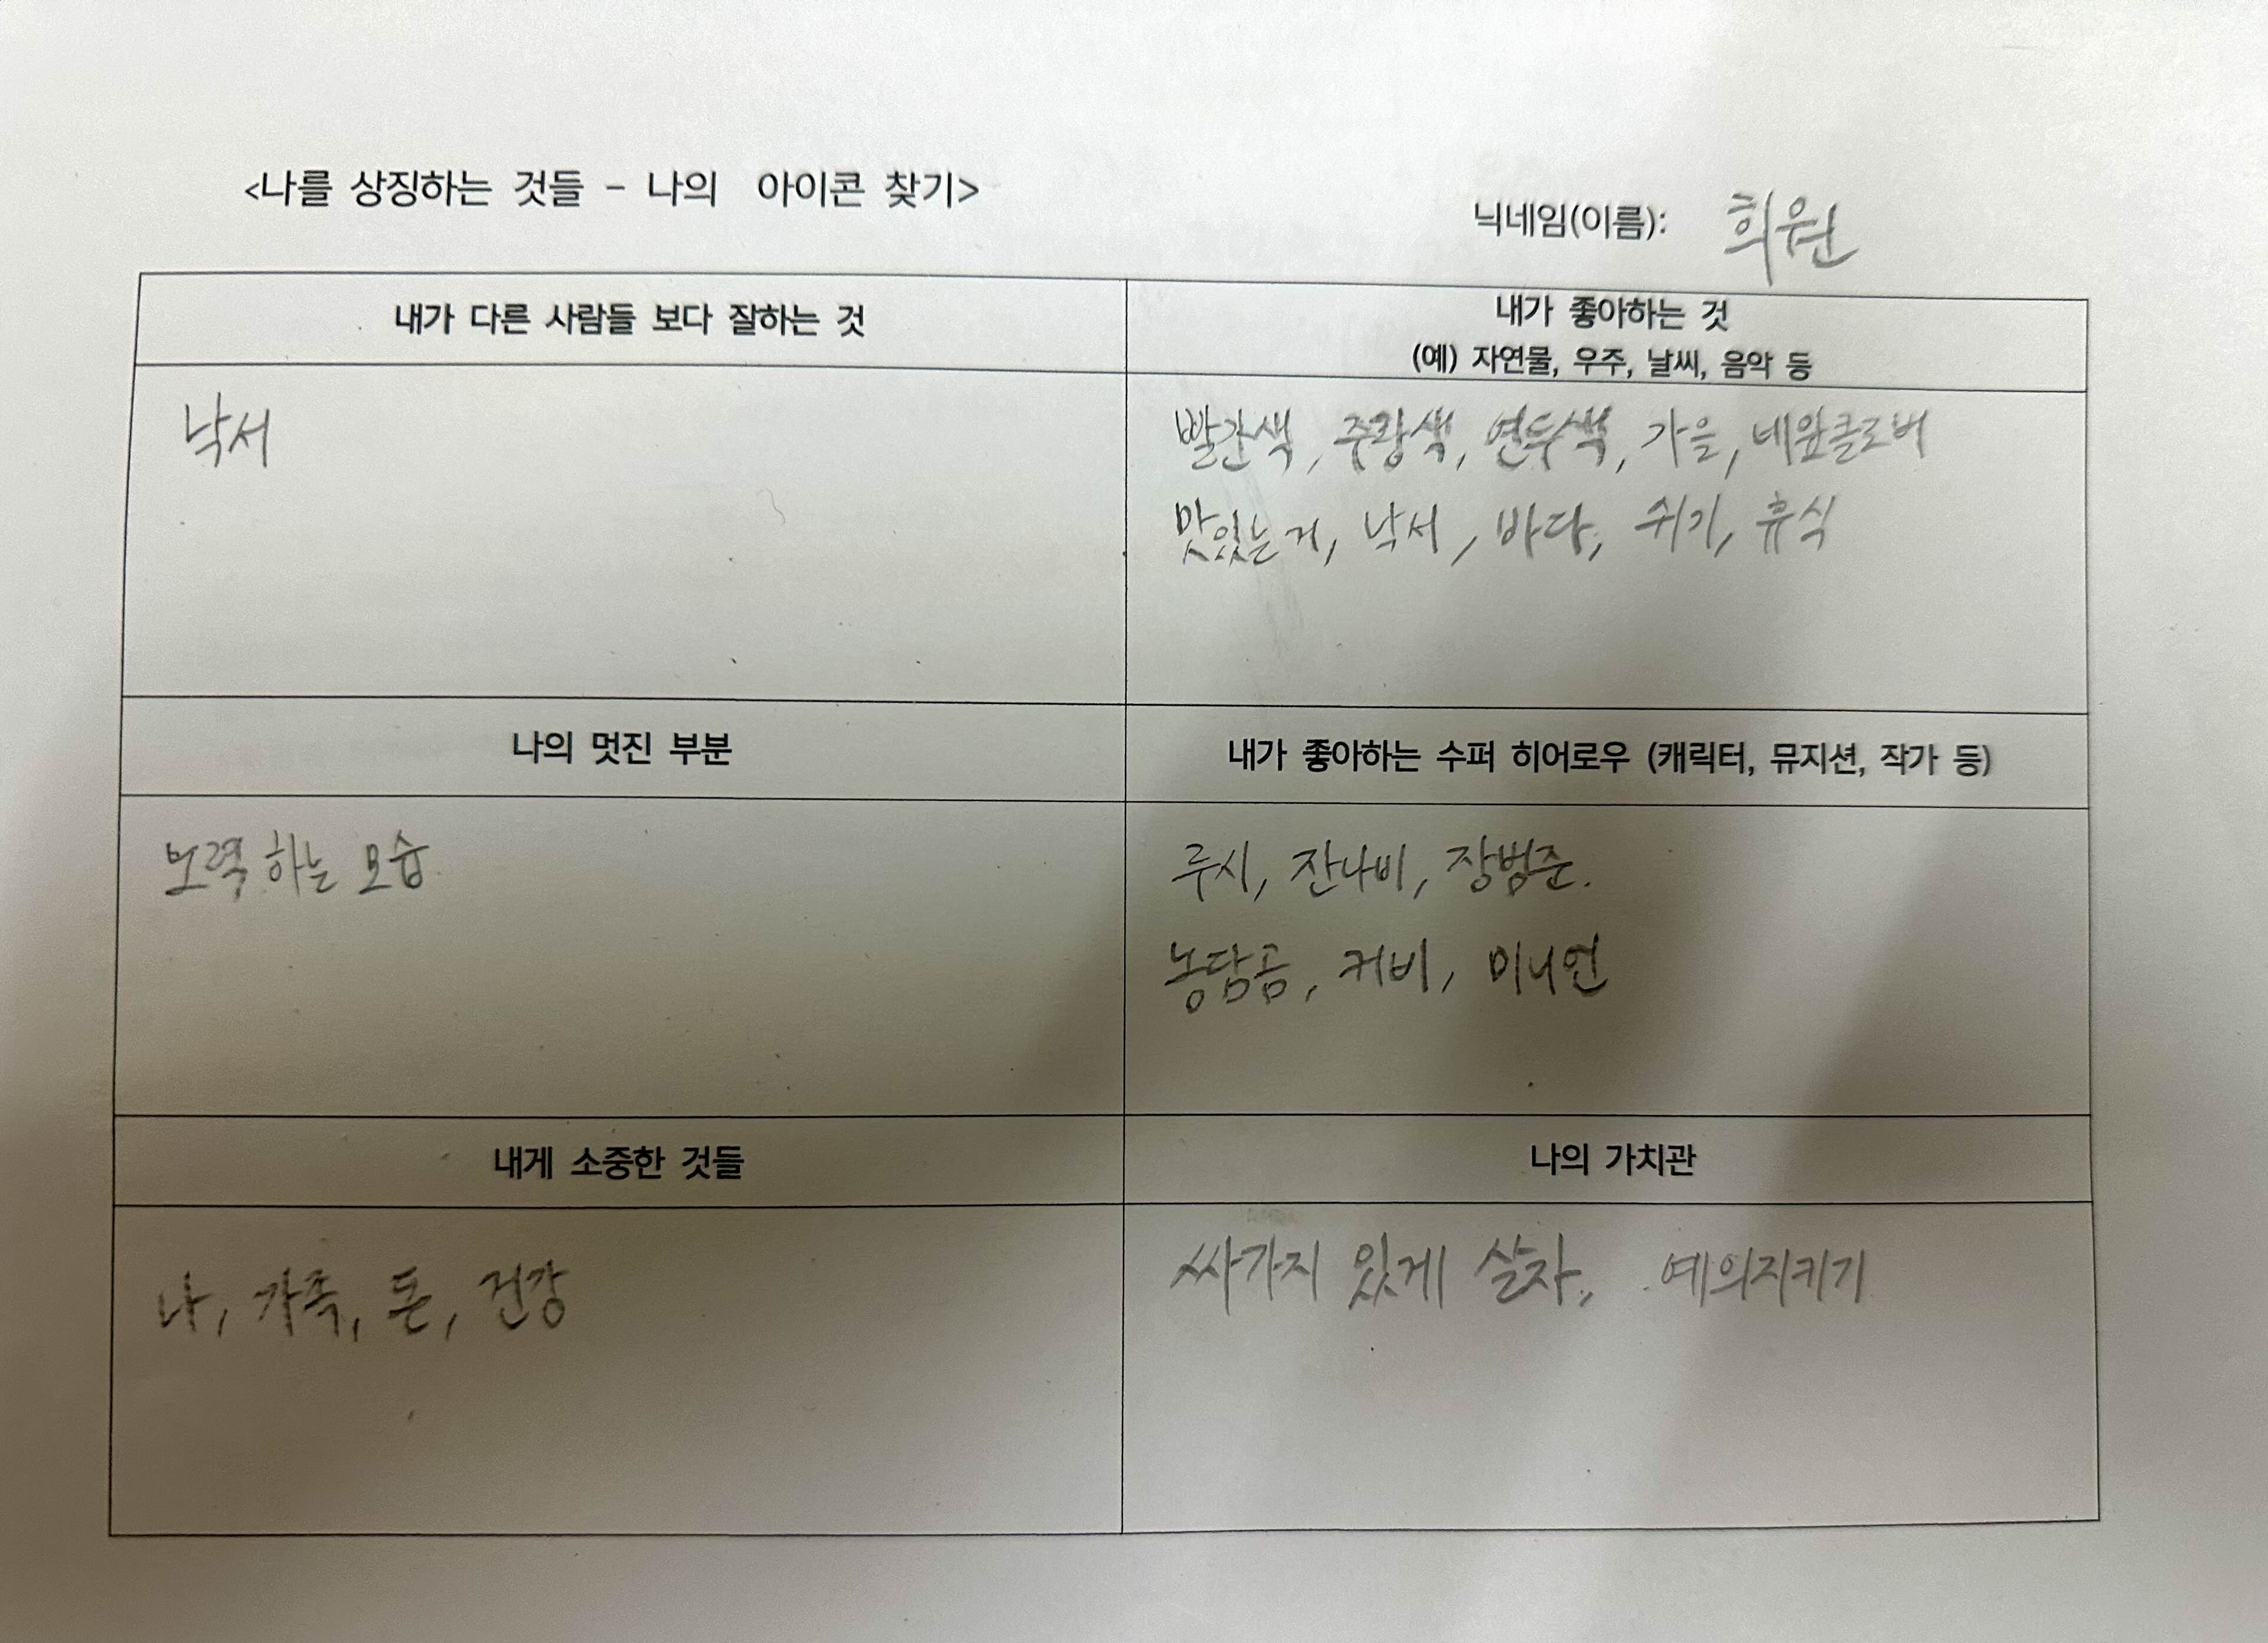 <나를 상징하는 것들 - 나의 아이콘 찾기>
닉네임(이름): 희원
내가 다른 사람들 보다 잘하는 것
낙서
내가 좋아하는 것
(예) 자연물, 우주, 날씨, 음악 등
빨간색, 주황색, 연두색, 가을, 네잎클로버
맛있는거, 낙서, 바다, 쉬기, 휴식
나의 멋진 부분
노력하는 모습
내가 좋아하는 수퍼 히어로우 (캐릭터, 뮤지션, 작가 등)
루시, 잔나비, 장범준.
농담곰, 커비, 미니언
내게 소중한 것들
나, 가족, 돈, 건강
나의 가치관
싸가지 있게 살자, 예의지키기